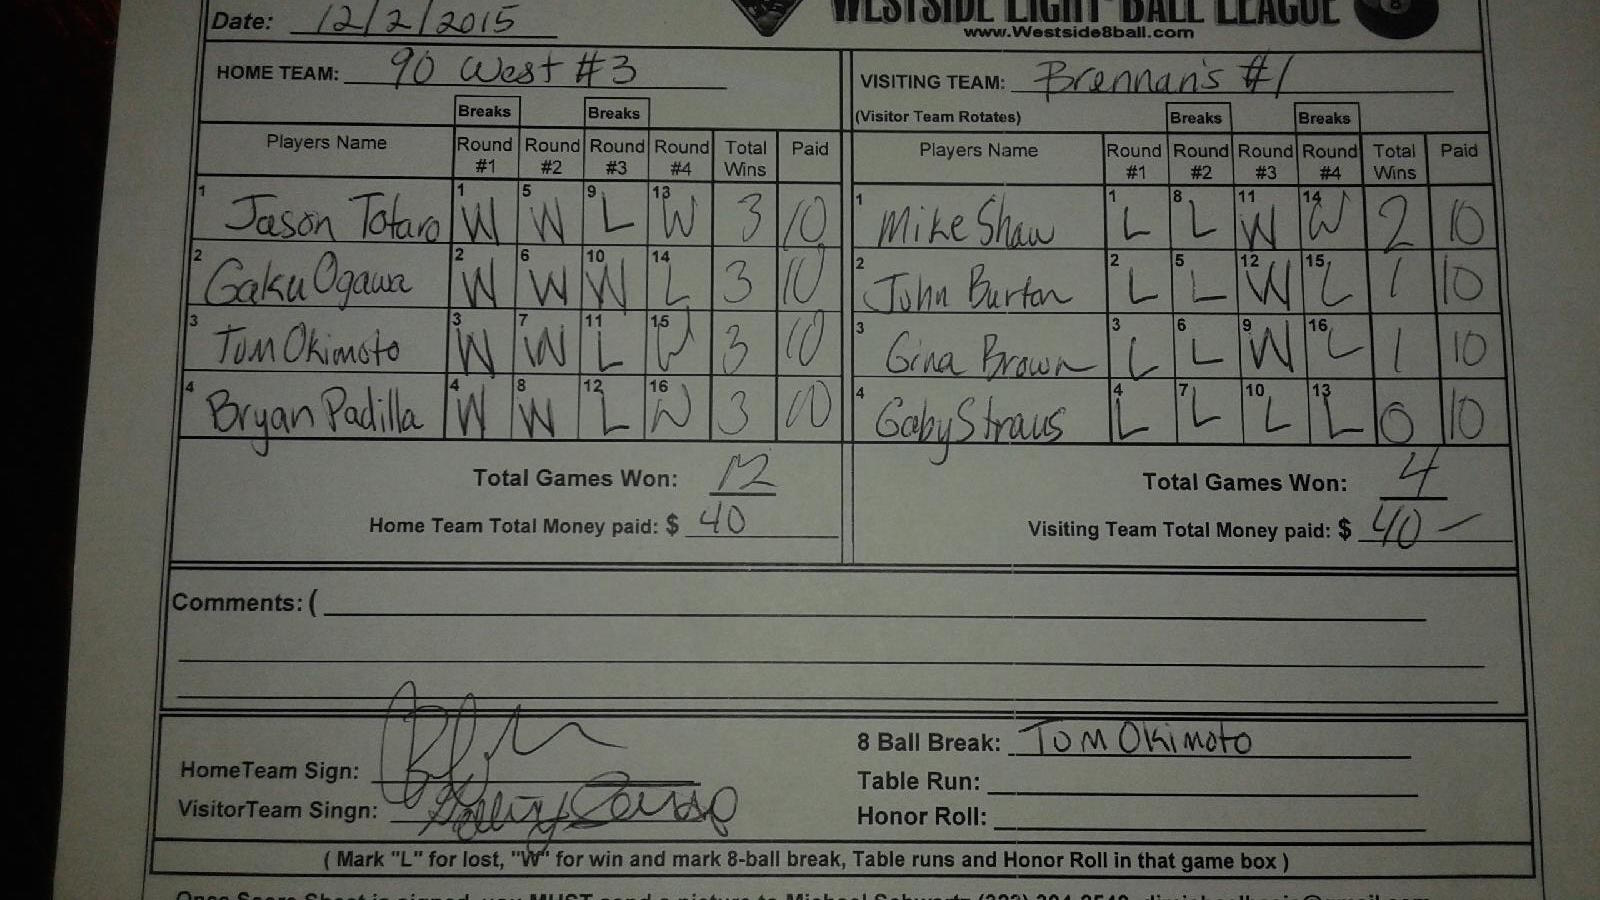 Date: 12/2/2015
WESTSIDE EIGHT-BALL LEAGUE
www.Westside8ball.com
HOME TEAM: 90 West #3
VISITING TEAM: Brennan's #1
(Visitor Team Rotates)
Breaks Breaks Breaks Breaks
Players Name Round #1 Round #2 Round #3 Round #4 Total Wins Paid
Players Name Round #1 Round #2 Round #3 Round #4 Total Wins Paid
1 Jason Totaro 1 W 5 W 9 L 13 W 3 10
1 Mike Shaw 1 L 8 L 11 W 14 W 2 10
2 Gaku Ogawa 2 W 6 W 10 W 14 L 3 10
2 John Burton 2 L 5 L 12 W 15 L 1 10
3 Tom Okimoto 3 W 7 W 11 L 15 W 3 10
3 Gina Brown 3 L 6 L 9 W 16 L 1 10
4 Bryan Padilla 4 W 8 W 12 L 16 W 3 10
4 Gaby Straus 4 L 7 L 10 L 13 L 0 10
Total Games Won: 12
Total Games Won: 4
Home Team Total Money paid: $ 40
Visiting Team Total Money paid: $ 40 –
Comments: (
HomeTeam Sign:
VisitorTeam Singn:
8 Ball Break: Tom Okimoto
Table Run:
Honor Roll:
( Mark "L" for lost, "W" for win and mark 8-ball break, Table runs and Honor Roll in that game box )